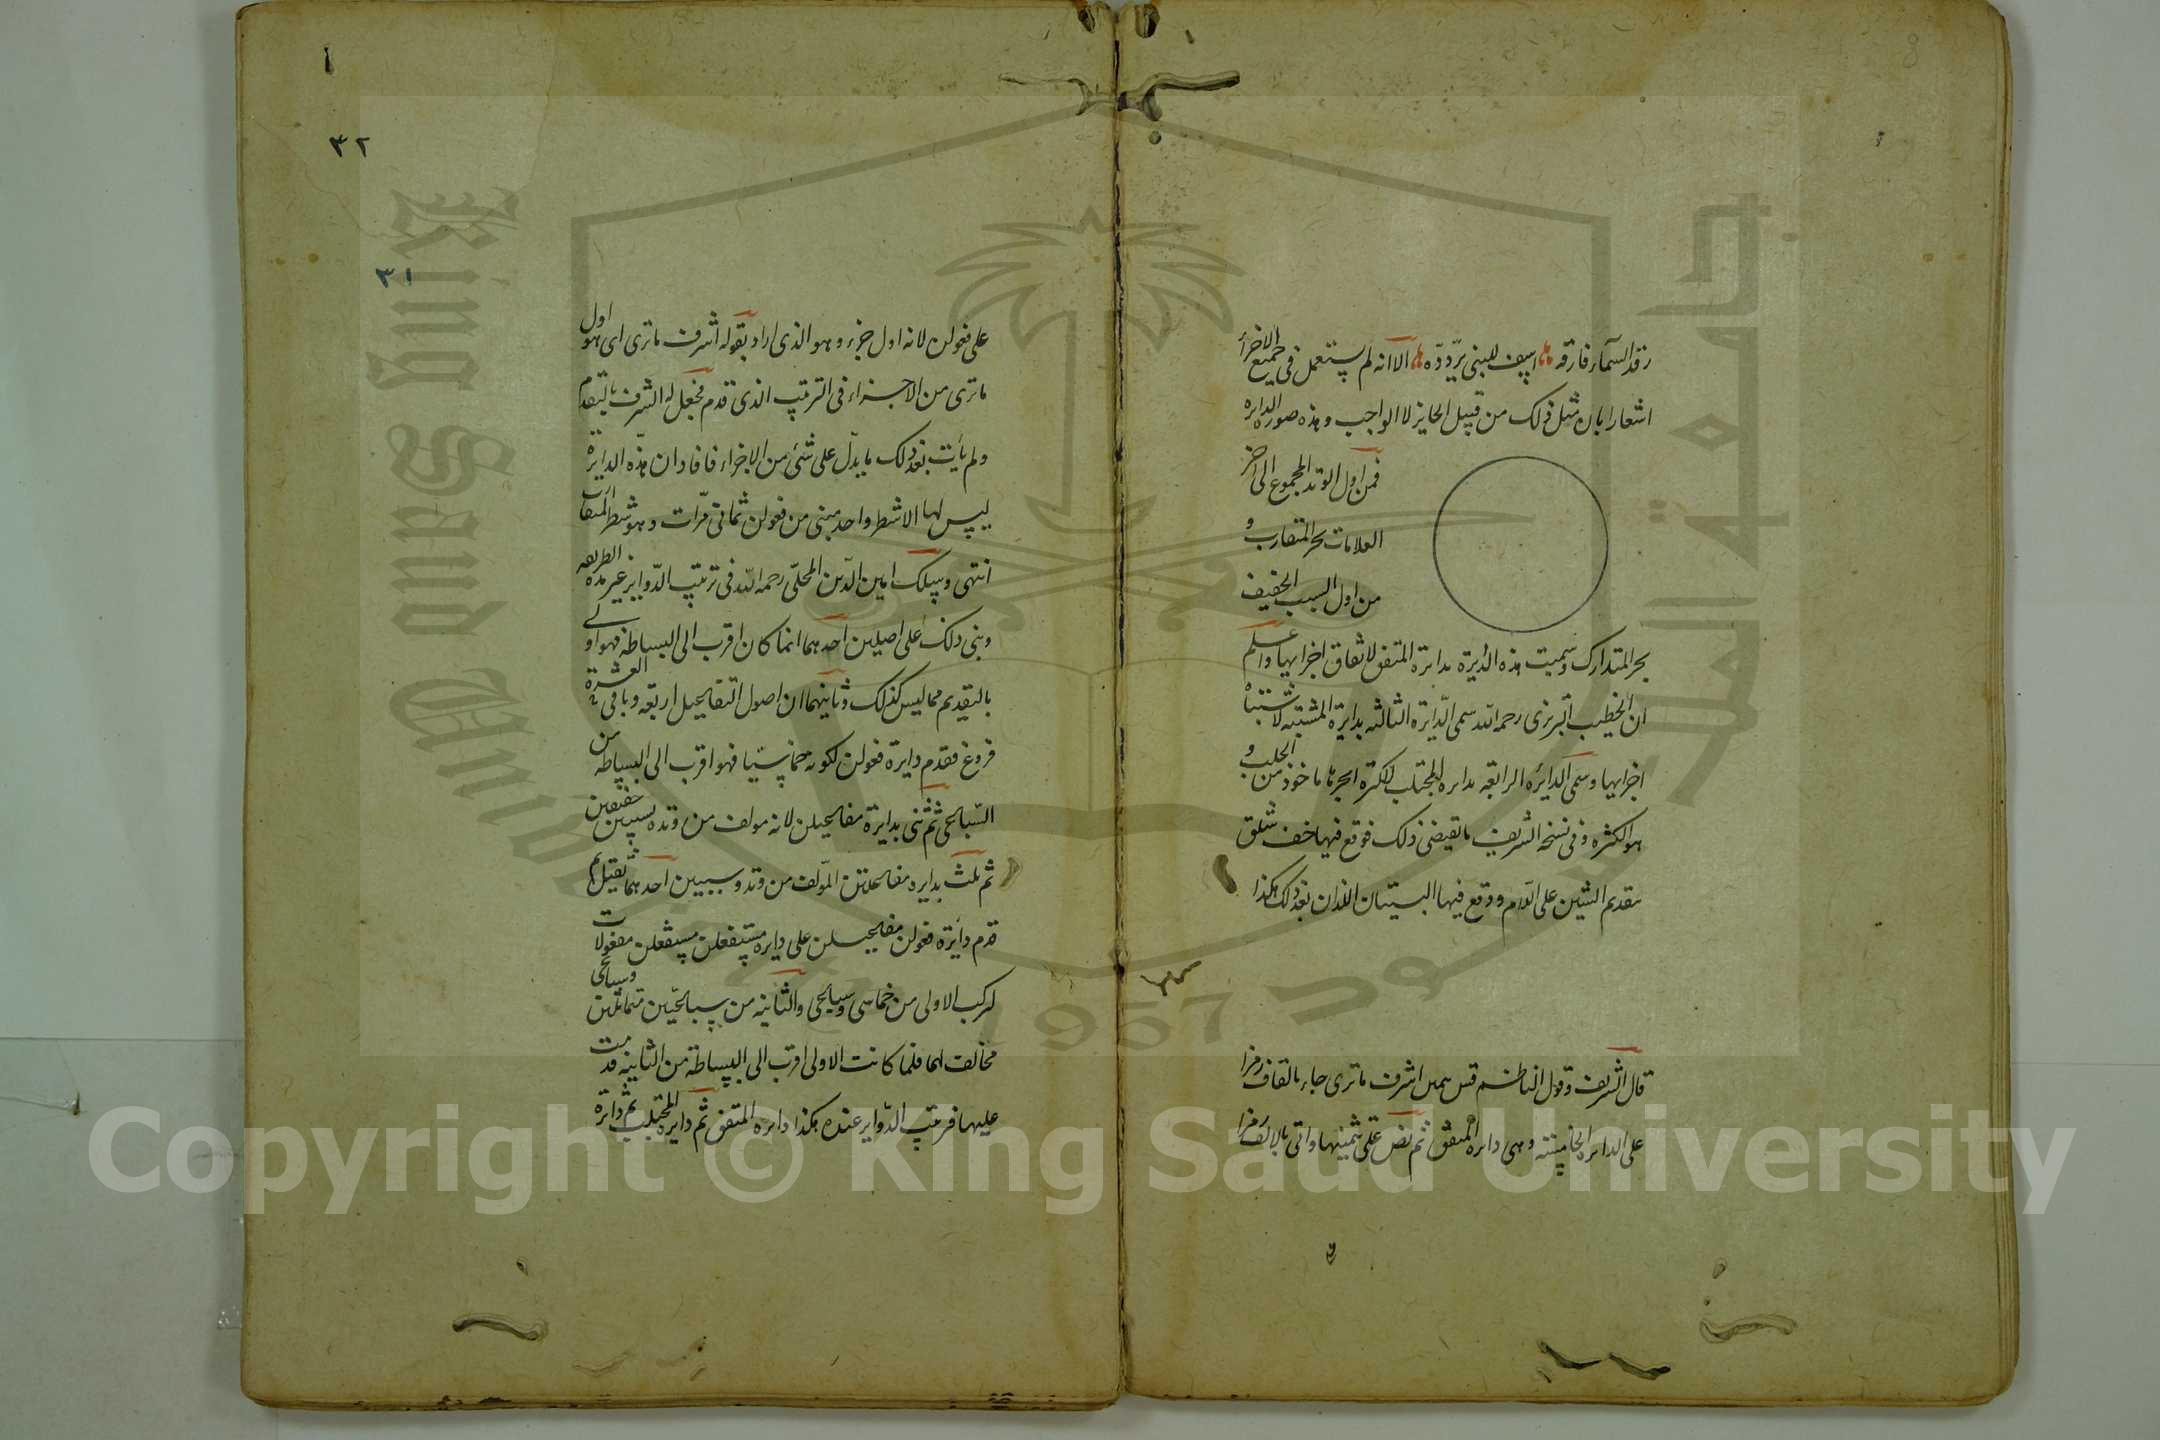 رقد السماء فارقه ه اسف للبنى يردده ه الا انه لم يستعمل فى جميع الاجزاء
اشعارا بان مثل ذلك من قبيل الجايز لا الواجب وهذه صورة الدايرة
فمن اول الوتد المجموع الى اخر
العلامات بحر المتقارب و
من اول السبب الخفيف
بحر المتدارك وسميت هذه الدايرة بدايرة المتفق لاتفاق اجزايها واعلم
ان الخطيب التبريزى رحمه الله سمى الدايرة الثالثه بدايرة المشتبه لاشتباه
اجزايها وسمى الدايرة الرابعه بدايرة المجتلب لكثرة ابحرها ماخوذ من الجلب و
هو الكثره وفى نسخة الشريف ما يقيضى ذلك فوقع فيها خف شلق
بتقديم الشين على اللام ووقع فيها البيتان اللذان بعد ذلك هكذا
قال الشريف وقول الناظم اشرف ما ترى جاء بالقاف رمزا
على الدايرة الخامسة وهى دايرة المتفق ثم نص على تثمينها واتى بالالف رمزا
و
٣٢
٣١
على فعولن لانه اول جزء وهو الذى اراد بقوله اشرف ما ترى اى هو اول
ما ترى من الاجزاء فى الترتيب الذى قدم فجعل له الشرف بالتقدم
ولم يأت بعد ذلك ما يدل على شئ من الاجزاء فافاد ان هذه الدايرة
ليس لها الا شطر واحد مبنى من فعولن ثمانى مرات وهو شطر المتقارب
انتهى وسلك امين الدين المحلى رحمه الله فى ترتيب الدواير غير هذه الطريقه
وبنى ذلك على اصلين احدهما انما كان اقرب الى البساطة فهو اولى
بالتقديم مما ليس كذلك وثانيهما ان اصول التفاعيل اربعه وباقى العشرة
فروع فقدم دايرة فعولن لكونه خماسيا فهو اقرب الى البساطه من
السباعى ثم ثنى بدايرة مفاعيلن لانه مولف من وتد وسببين خفيفين
ثم ثلث بدايرة مفاعلتن المولف من وتد وسببين احدهما ثقيل ثم
قدم دايرة فعولن مفاعيلن على دايرة مستفعلن مستفعلن مفعولات
لتركب الاولى من خماسى وسباعى والثانيه من سباعيين متماثلين وسباعى
مخالف لهما فلما كانت الاولى اقرب الى البساطة من الثانية قدمت
عليها فرتيب الدواير عنده هكذا دايرة المتفق ثم دايرة المجتلب ثم دايرة
King Saud University
1957
Copyright © King Saud University